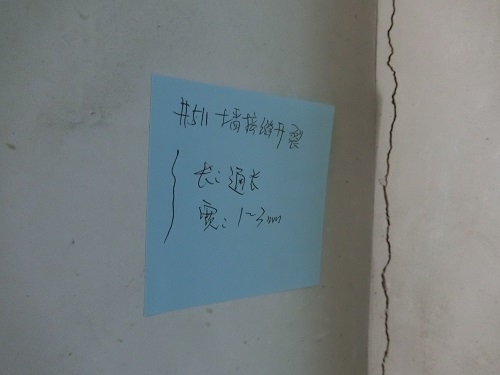 #511墙接缝开裂
长:通长
宽:1~3mm